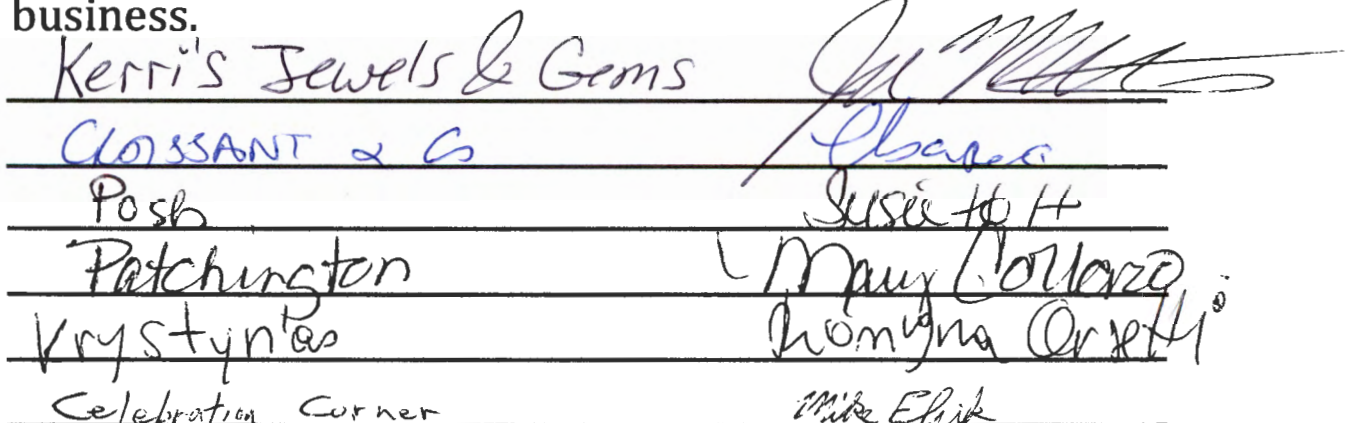 business.
Kerri's Jewels & Gems
CROISSANT & Co
Posh Susie Hott
Patchington Mary Collazo
Krystyn'as Romina Orsetti
Celebration Corner Mike